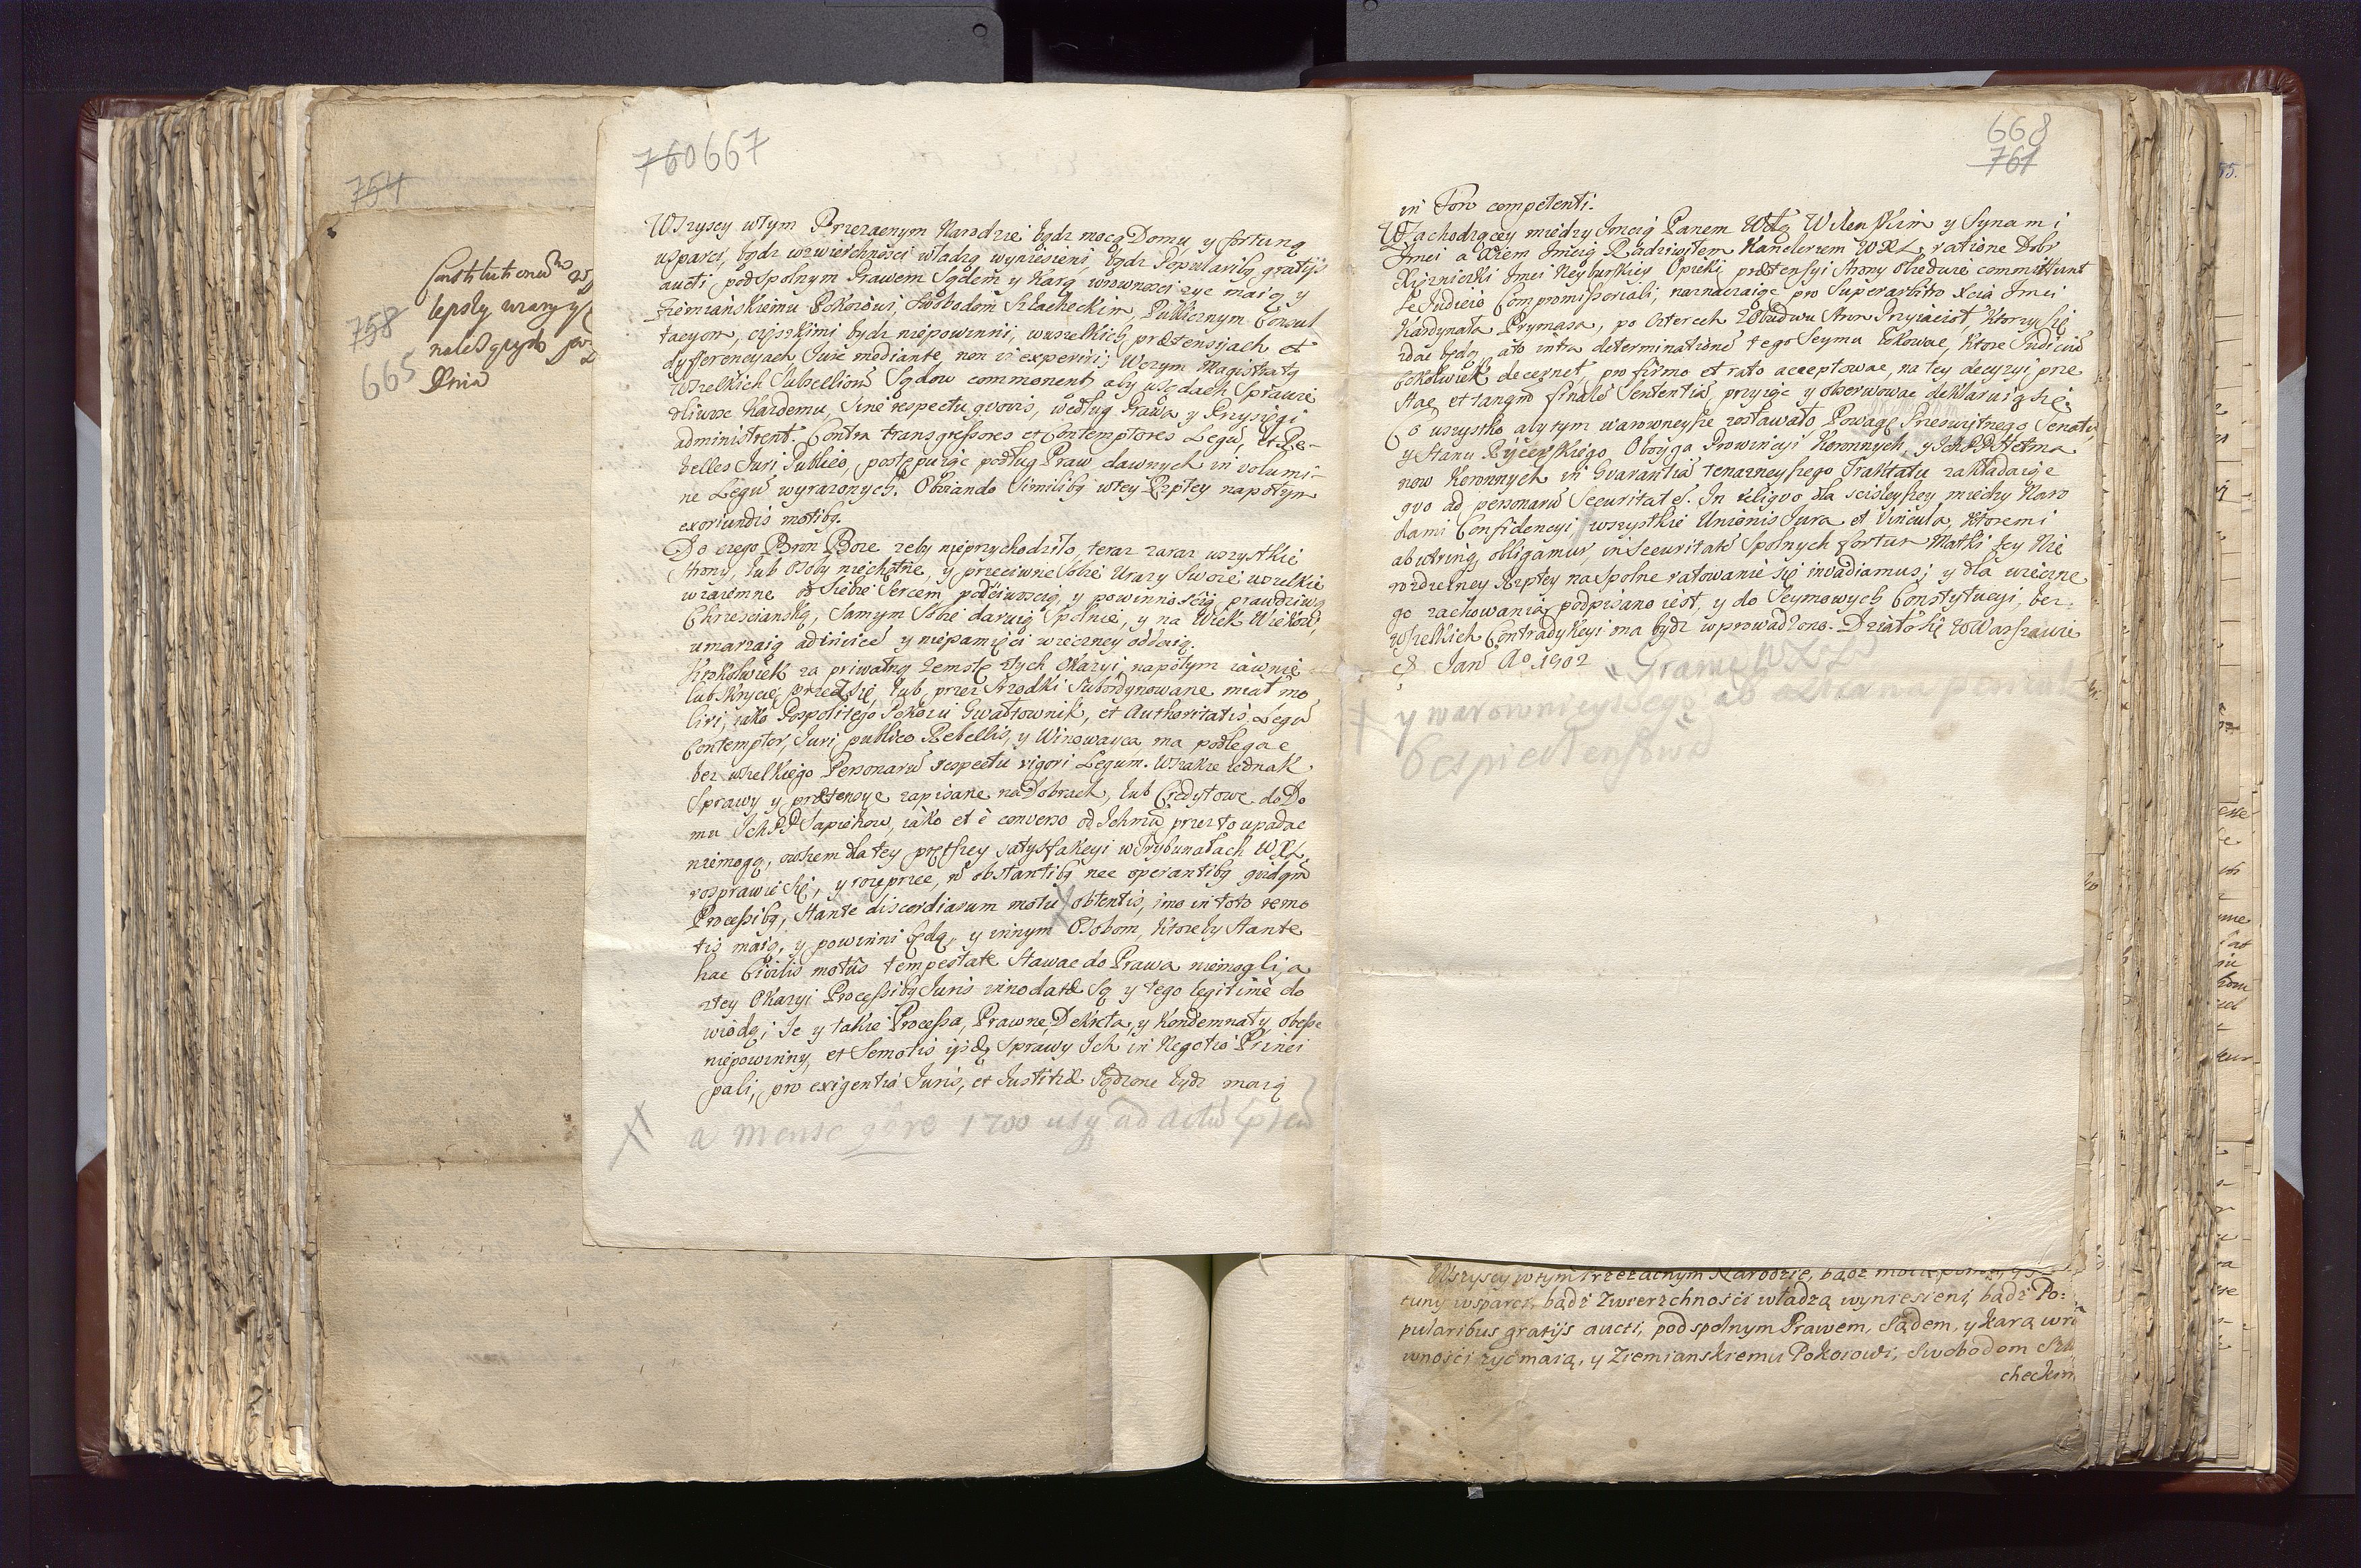 754
Constitutionum
758
lepszy wrazy y
należących
665
Dnia
760 667
Wszyscy wtym Przezacnym Narodzie bądz mocą Domu y fortuną
wsparci, bądz wzwierchności władzą wyniesieni, bądz Popularibq gratijs
aucti podspolnym Prawem Sądem y Karą wrownosci zyc maią y
Ziemianskiemu Pokoiowi, Swobodom Szlacheckim, Publicznym Consul
tacyom, cięszkimi bydz niepowinni, wwszelkich prætensyach et
dyfferencyach Jure mediante, non vi experiri; Wczym Magistraty
wszelkich Subselliorũ Sądow commonent, aby wsądach Sprawie
dliwosc Kazdemu, Sine respectu quovis, według Prawa y Przysięgi
administrent. Contra transgressores et Contemptores Legũ, et Re-
belles Juri Publico, postępuiąc podług Praw dawnych in volumi-
ne Legũ wyrazonych. Obviando Similibq wtey Rzptey napotym
exoriundis motibq.
Do czego Bron Boze zeby nieprzychodziło, teraz zaraz wszystkie
strony, lub Osoby niechętne, y przeciwne Sobie Urazy Swoie wszelkie
wzaiemne od Siebie Sercem, podściwoscią, y powinnością prawdziwą
Chrzescianską, Samym Sobie daruią Spolnie, y na Wiek Wiekow,
umarzaią adinvicẽ y niepamięci wieczney oddaią.
Ktokolwiek za priwatną zemstę ztych Okazyi napotym iawnie
lub skrycie, przez się, lub przez Srzodki Subordynowane miał mo
liri, iako Pospolitego Pokoiu Gwałtownik, et Authoritatis Legũ
Contemptor, Juri publico Rebellis, y Winowayca, ma podlegac
bez wszelkiego Personarũ respectu rigori Legum. Wszakze iednak
Sprawy y prætensye zapisane na Dobrach, lub Credytowe do Do
mu Ich PP Sapiehow, iako et è converso od Ichmciũ przez to upadac
niemogą, owszem dla tey prętszey satysfakcyi w Trybunałach WXL
rosprawic się, y rozeprzec, ñ obstantibq nec operantibq quidqm̃
Processibq, stante discordiarum motu X obtentis, imo in toto remo
tis maią, y powinni będą, y innym Osobom, ktoreby stante
hac Civilis motûs tempestate stawac do Prawa niemogli, a
ztey Okazyi Processibq Juris innodatæ Są y tego legitimè do
wiodą; Ze y takie Processa, Prawne Dekreta, y Kondemnaty, obesse
niepowinny, et Semotis ijsdẽ, Sprawy Ich in Negotio Princi
pali, pro exigentiâ Juris, et Justitiæ Sądzone bydz maią
X a mense 1700 usq ad actũ
668
761
in Foro competenti.
Wzachodzącey między Jmcią Panem Wdą Wilenskim y Synami
Jmci a Wżem Jmcią Radziwiłem Kanclerzem WXL ratione Dobr
Xięzniczki Jmci Neyburskiey Opieki prætensyi strony obiedwie committunt
Se Judicio Compromissoriali, naznaczaiąc pro Superarbitro Xcia Jmci
Kardynała Prymasa, po czterech zObudwu stron Przyiacioł, ktorzy się
zdac będą, ato intra determinationẽ tego Seymu lokowac, ktore Judiciũ
cokolwiek decernet, pro firmo et rato acceptowac, na tey decyzyi prze
stac, et tanqm̃ finalẽ Sententiã, przyiąc y obserwowac deklaruią się.
Co wszystko aby tym warownieysze zostawało Powagę Przeswiętnego Senatu,
y Stanu Rycerskiego, Oboyga Prowincyi Koronnych, y Ich PP Hetma
now Koronnych in Gvarantiã tenaznieyszego Traktatu zakładaiąc
quo ad personarũ Securitatẽ. In reliquo dla scisleyszey między Naro
dami Confidencyi wszystkie Unionis Jura et Vincula, ktoremi
ab utrinq obligamur, in Securitatẽ Spolnych fortun Matki tey Nie
rozdzielney Rzptey na Spolne ratowanie się invadiamus; y dla wieczne
go zachowania podpisano iest, y do Seymowych Constytucyi, bez
wszelkich Contradykcyi ma bydz wprowadzono. Działo się w Warszawie
8 Jan Ao 1702
X y warownieyszego ab
bespieczenstwa
Wszyscy wtym Przezacnym Narodzie, bądz
tuny wsparci, bądź Zwierzchności władzą wyniesieni bądź Po:
pularibus gratijs aucti, pod spolnym Prawem, Sądem, y Karą wro
wności zyć maią, y Ziemianskiemu Pokoiowi, Swobodom Szla
checkim